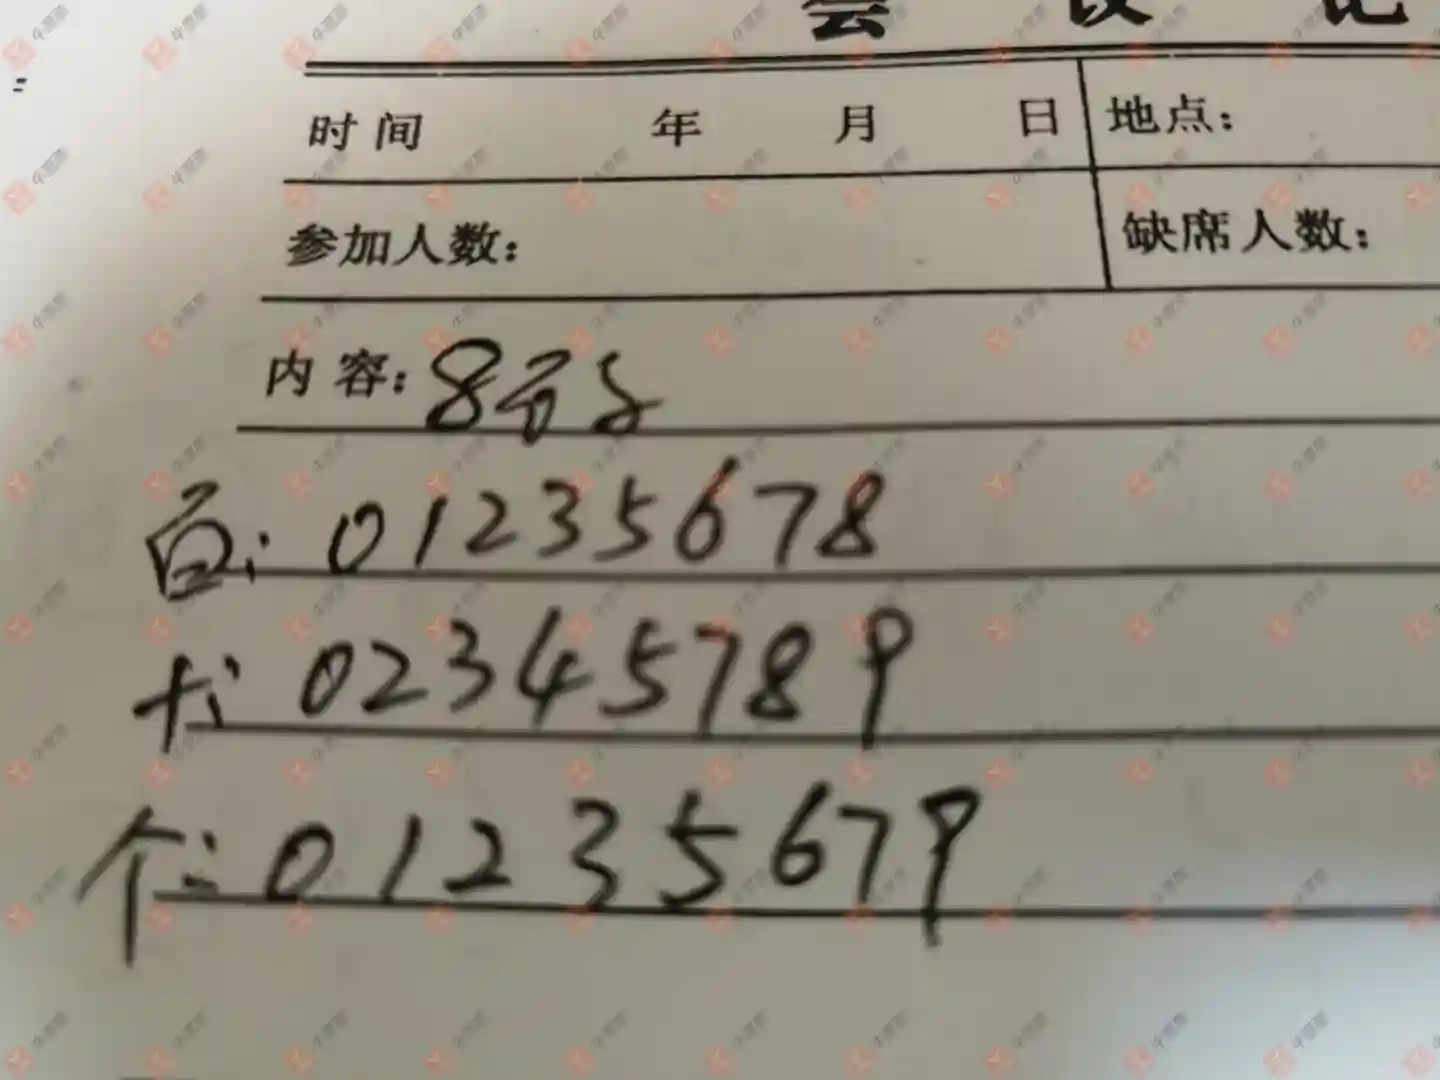 会 议 记
时 间 年 月 日 地点:
参加人数: 缺席人数:
内 容: 8号
百: 01235678
十: 02345789
个: 01235679